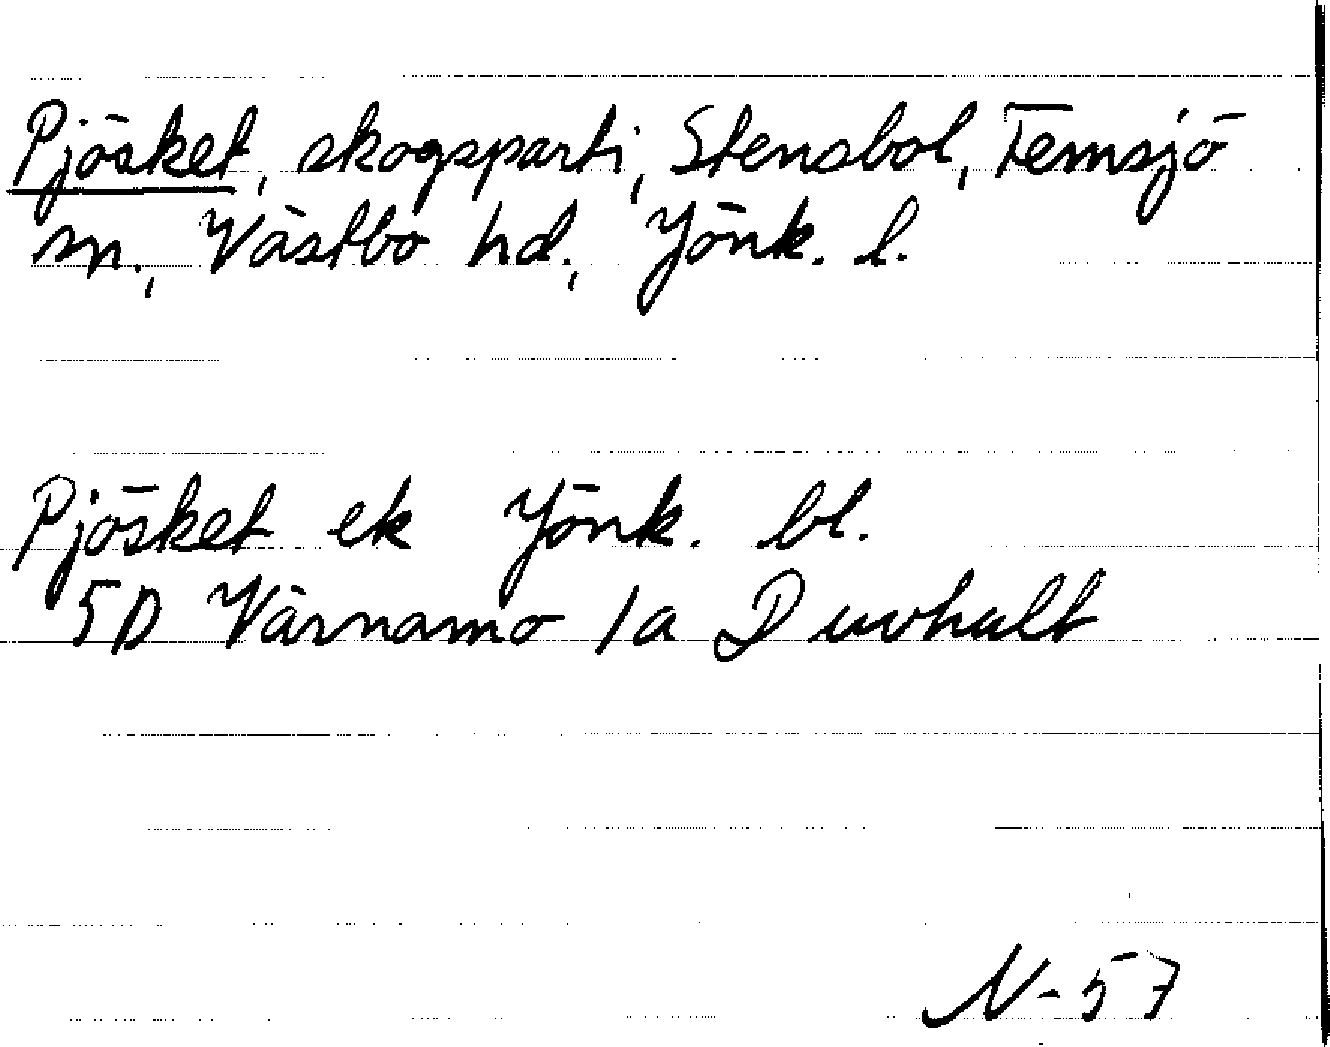 Pjösket, skogsparti, Stensbol, Femsjö
sn., Västbo hd., Jönk. l.
Pjösket ek Jönk. bl.
5D Värnamo 1a Duvhult
N-57